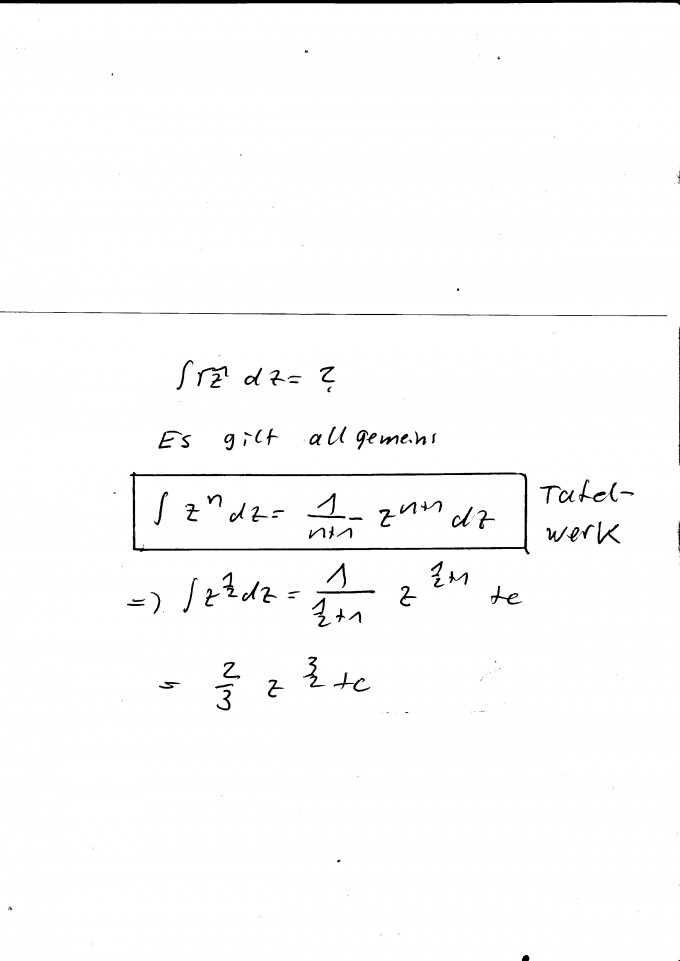 ∫√z dz = ?
Es gilt allgemein
∫ z^n dz = 1/(n+1) z^(n+1) dz
Tafel-
werk
=> ∫ z^(1/2) dz = 1/(1/2+1) z^(1/2+1) +c
= 2/3 z^(3/2) +c